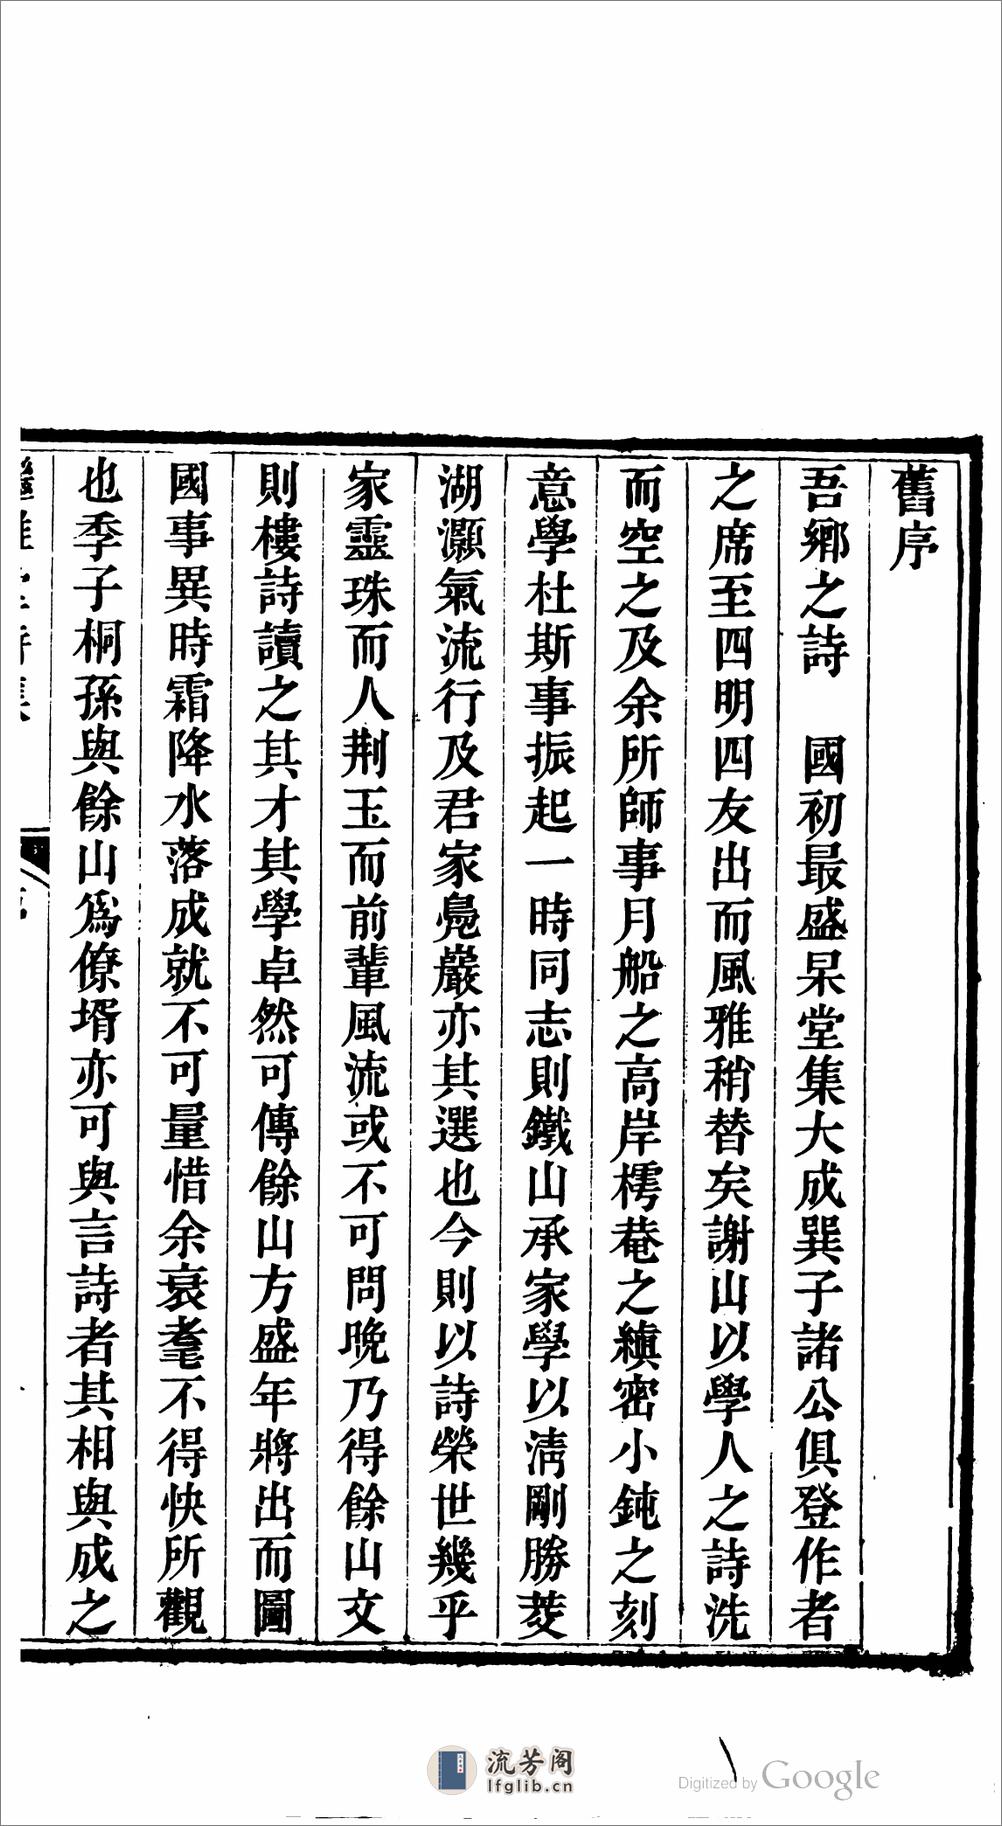 舊序
吾鄉之詩　國初最盛杲堂集大成巽子諸公俱登作者
之席至四明四友出而風雅稍替矣謝山以學人之詩洗
而空之及余所師事月船之高岸樗菴之縝密小鈍之刻
意學杜斯事振起一時同志則鐵山承家學以淸剛勝荾
湖灝氣流行及君家鳧巖亦其選也今則以詩榮世幾乎
家靈珠而人荆玉而前輩風流或不可問晚乃得餘山文
則樓詩讀之其才其學卓然可傳餘山方盛年將出而圖
國事異時霜降水落成就不可量惜余衰耄不得快所觀
也季子桐孫與餘山爲僚壻亦可與言詩者其相與成之
流芳阁
lfglib.cn
Digitized by Google